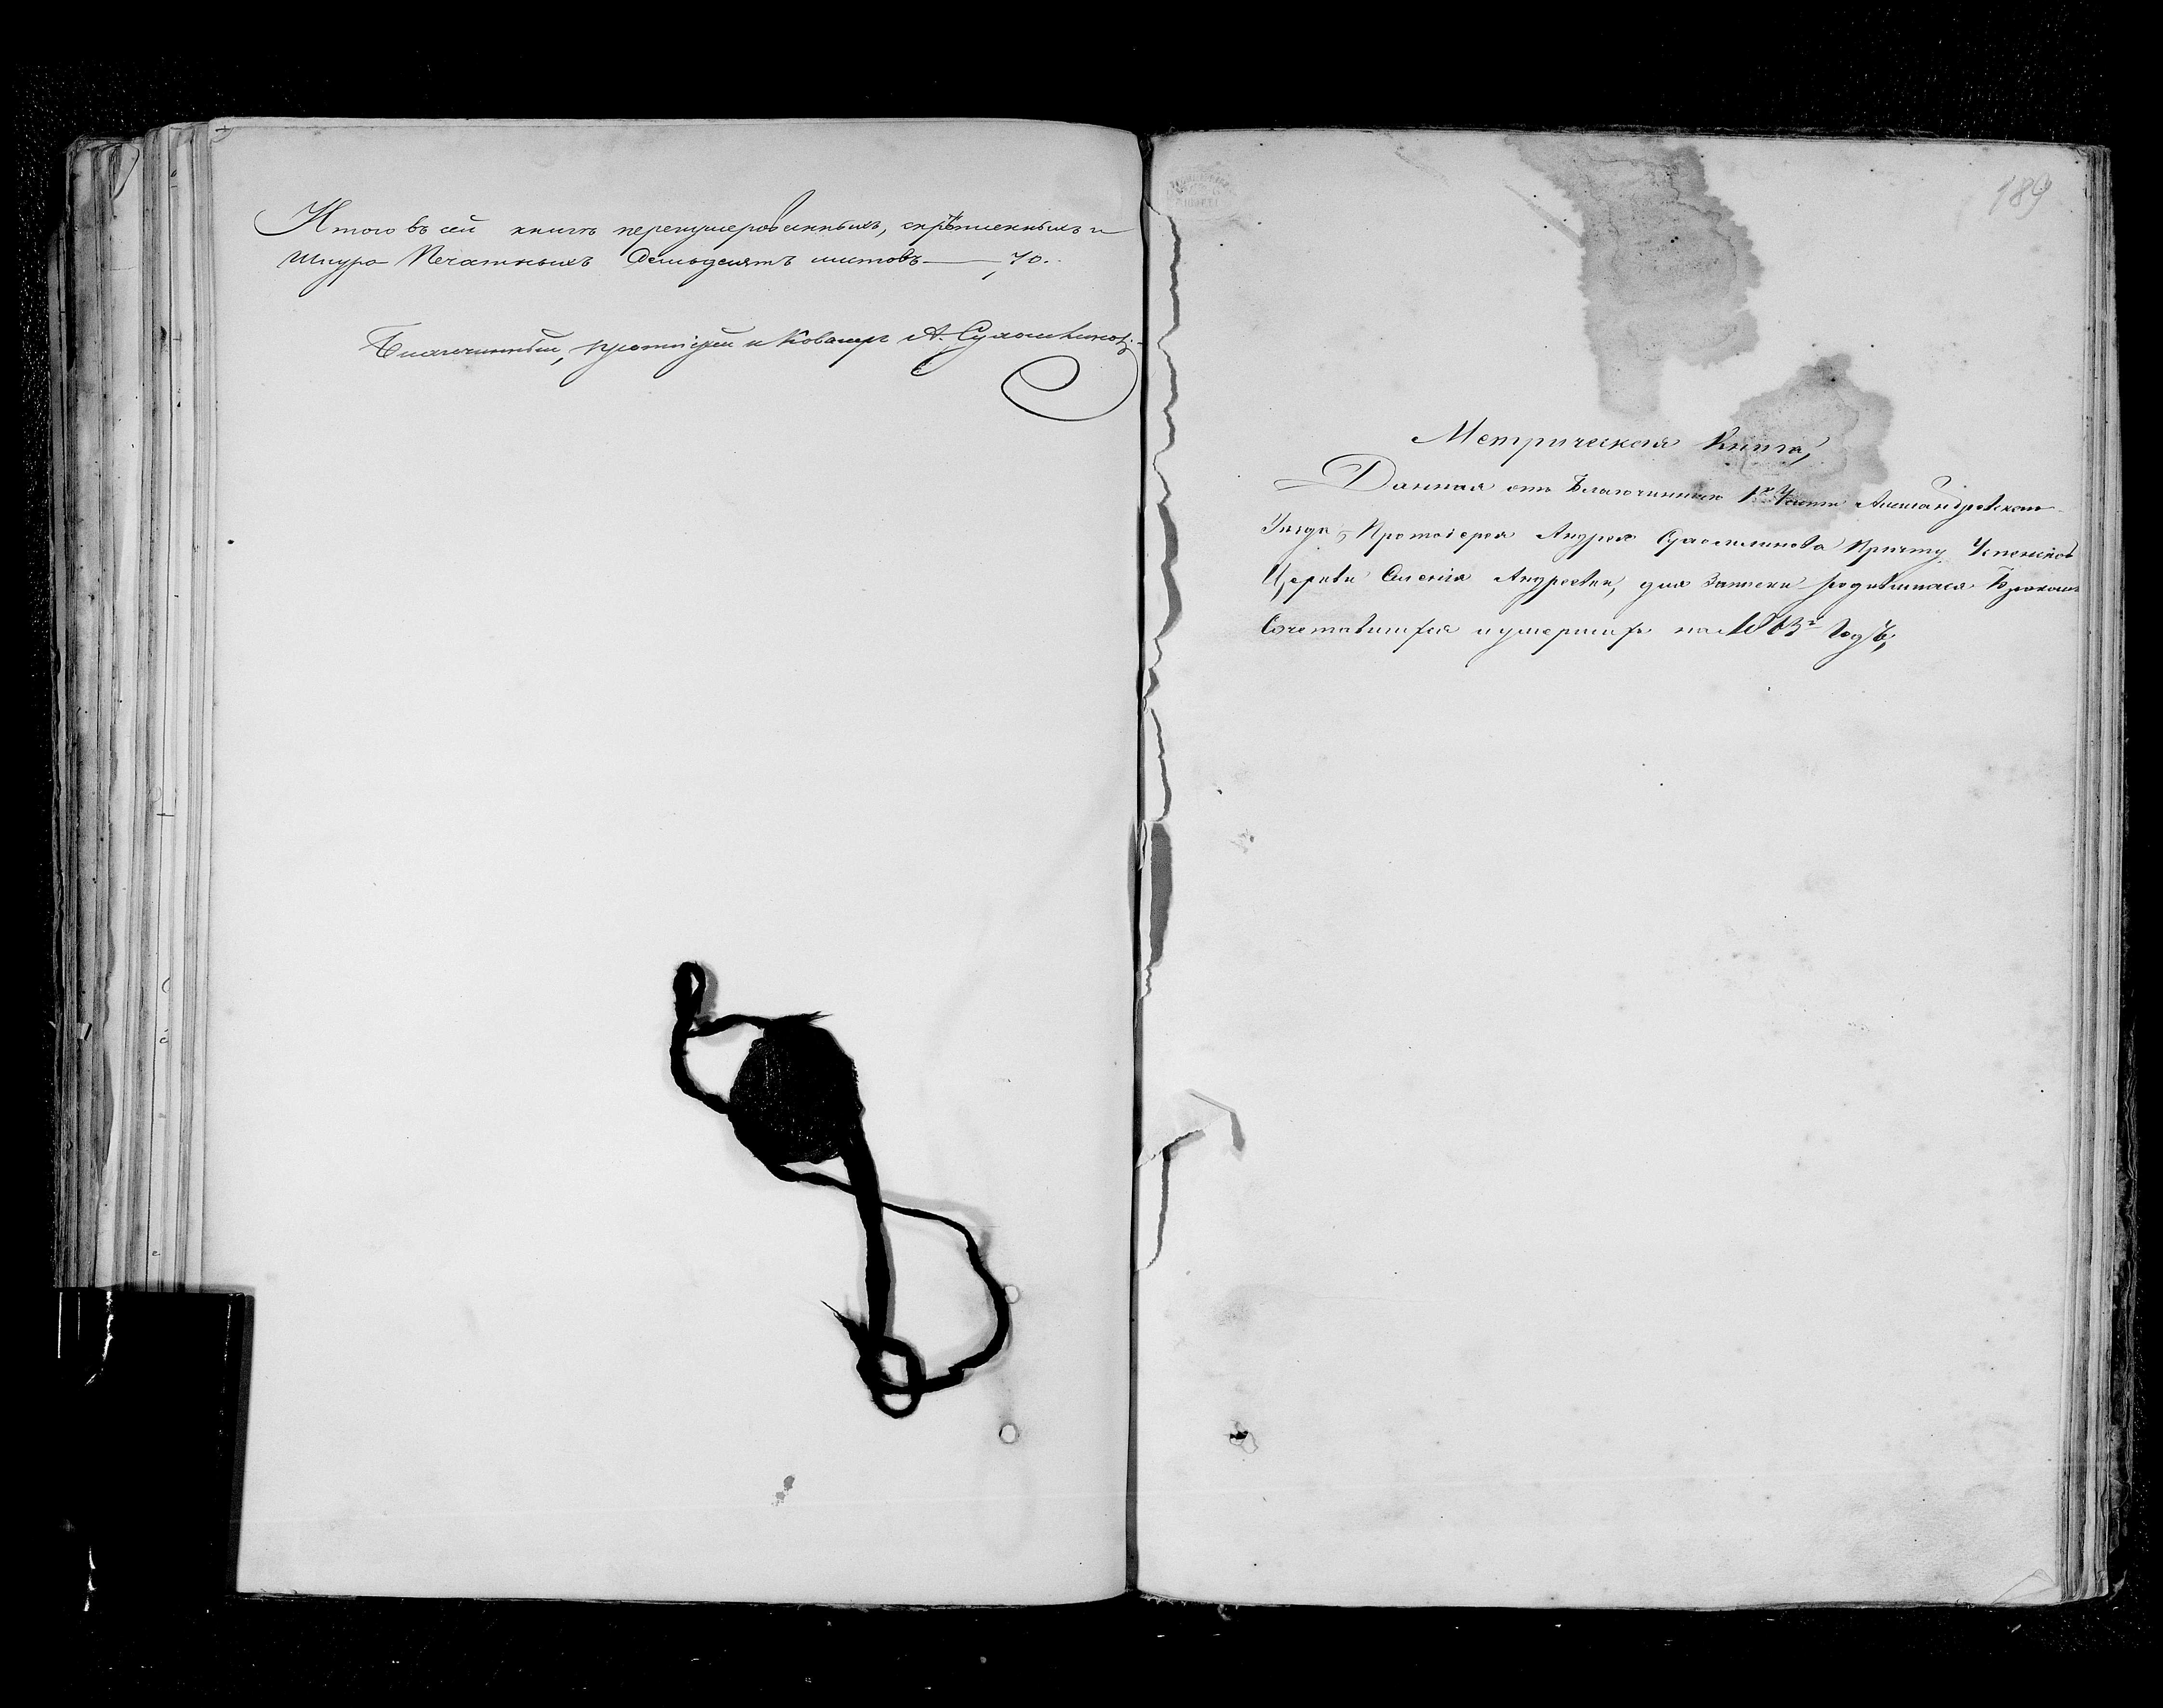 Итого въ сей книгѣ перенумерованныхъ, скрѣпленныхъ и
шнуро Печатныхъ Семьдесятъ листовъ — 70.
Благочинный, протоіерей и Кавалеръ А.
189
Метрическая Книга,
Данная отъ Благочиннаго 1й Части Александровскаго
Уѣзда, Протоіерея Андрея Причту Успенской
Церкви Селенія Андреевки, для Записки родившихся Бракомъ
Сочетавшихся и умершихъ на Годъ,